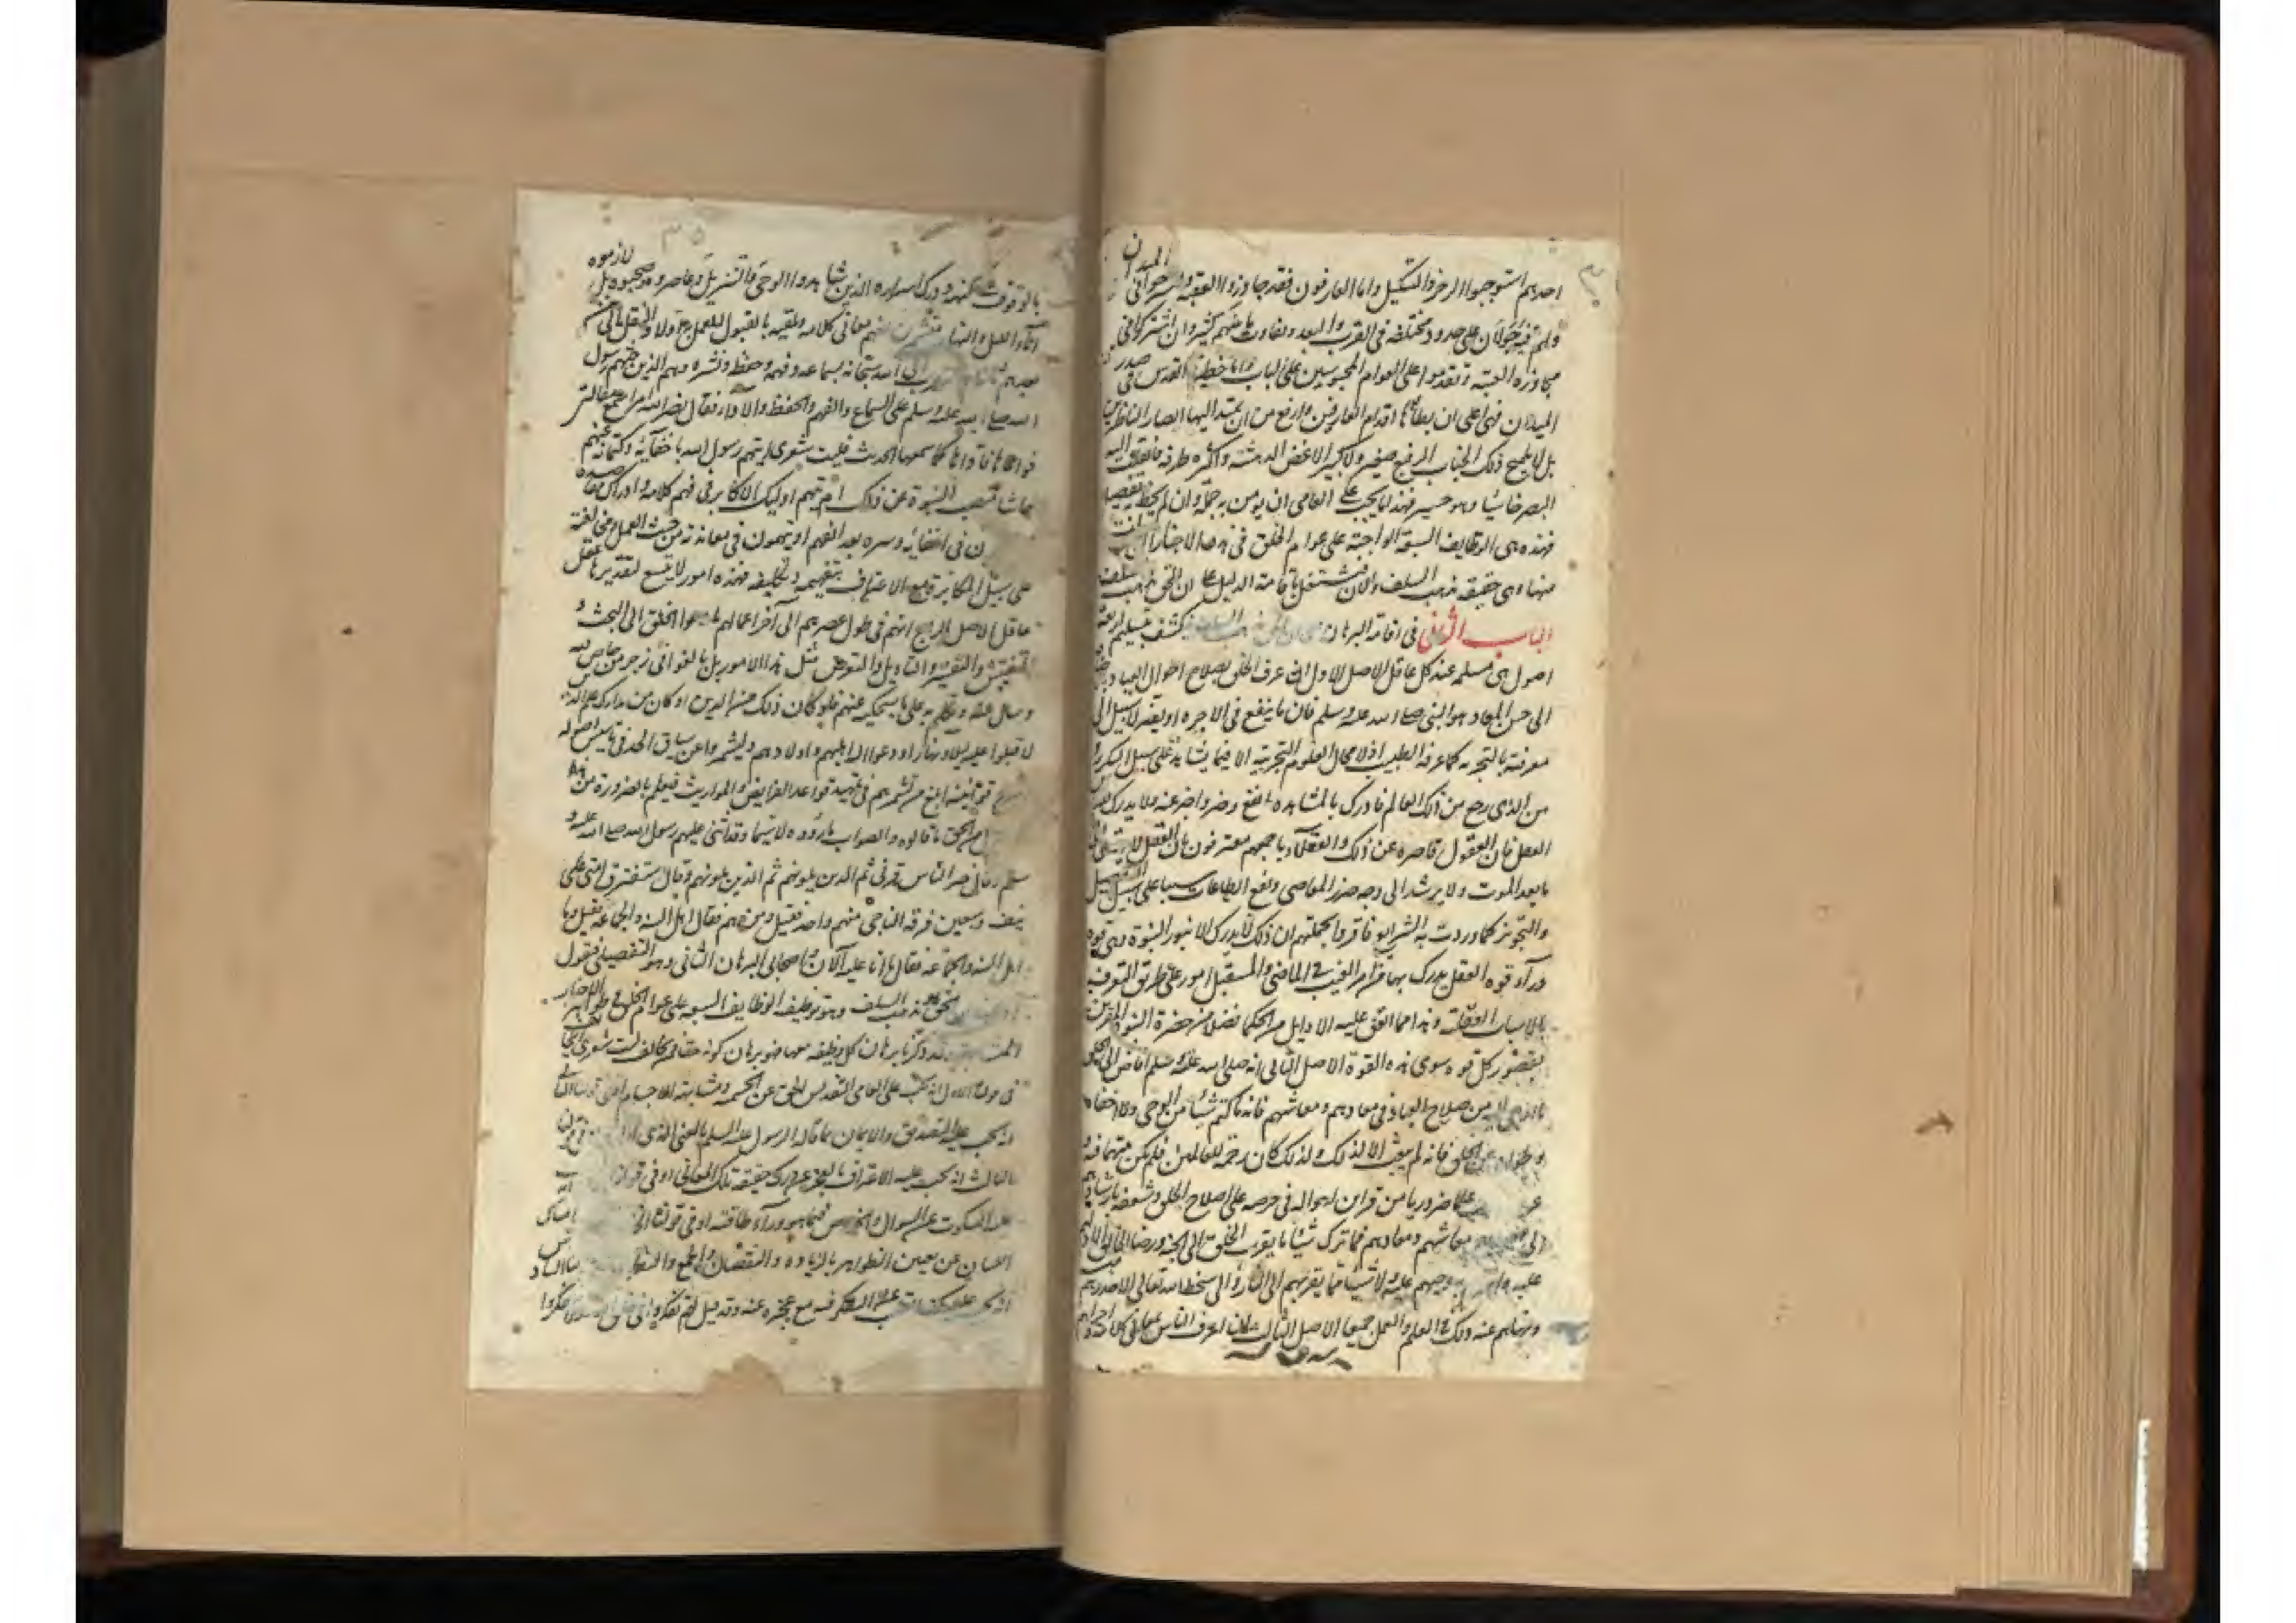 الميدان
احدهم استوجبوا الزجر والتنكيل واما العارفون فقد جاوزوا العقبة وانسرحوا في
ولهم فيه جولان على حدود مختلفة في القرب والبعد وتفاوت ما بينهم كثير وان اشتركوا في
مجاوزة العتبة وتقدموا على العوام المحبوسين على الباب واما حظيرة القدس في صدر
الميدان فهي اعلى ان يطأها اقدام العارفين وارفع من ان يمتد اليها ابصار الناظرين
بل لا يلمح ذلك الجناب الرفيع صغير ولا كبير الا غض الدهشة والحيرة طرفه فانقلب اليه
البصر خاسئا وهو حسير فهذا ما يجب على العامي ان يؤمن به جملة وان لم يحط به تفصيلا
فهذه هي الوظايف السبعة الواجبة على عوام الخلق في هذه الاخبار التي سألت
عنها وهي حقيقة مذهب السلف والان نشتغل باقامة الدليل على ان الحق مذهب السلف
الباب الثاني في اقامة البرهان على ان الحق مذهب السلف ينكشف بتسليم اربعة
اصول هي مسلمة عند كل عاقل الاصل الاول ان اعرف الخلق بصلاح احوال العباد بالاضافة
الى حسن المعاد هو النبي صلى الله عليه وسلم فان ما ينفع في الاخرة او يضر لا سبيل الى
معرفته بالتجربة كما عرف الطبيب اذ لا مجال للعلوم التجربية الا فيما يشاهد على سبيل التكرر
من الذي رجع من ذلك العالم فادرك بالمشاهدة ما نفع وضر واخبر عنه ولا يدرك بقياس
العقل فان العقول قاصرة عن ذلك والعقلاء باجمعهم معترفون بان العقل لا يهتدي الى
ما بعد الموت ولا يرشد الى وجه ضرر المعاصي ونفع الطاعات لا سيما على سبيل التفصيل
والتجويز كما وردت به الشرايع فاقروا بجملتهم ان ذلك لا يدرك الا بنور النبوة وهي قوة
وراء قوة العقل يدرك بها من امر الغيب في الماضي والمستقبل امور على طريق التعرف
بالاسباب العقلية وهذا مما اتفق عليه الاوايل من الحكما فضلا من حضرة النبوة المقرين
بقصور كل قوة سوى هذه القوة الاصل الثاني انه صلى الله عليه وسلم افاض الى الخلق
ما اوحي اليه من صلاح العباد في معادهم ومعاشهم فانه ما كتم شيئا من الوحي ولا اخفاه
وطواه عن الخلق فانه لم يبعث الا لذلك ولذلك كان رحمة للعالمين فلم يكن متهما فيه
علما ضروريا من قراين احواله في حرصه على اصلاح الخلق وشغفه بارشادهم
الى معاشهم ومعادهم فما ترك شيئا مما يقرب الخلق الى الجنة ورضا الخالق الا دلهم
عليه وامرهم به وحثهم عليه ولا شيئا مما يقربهم الى النار والى سخط الله تعالى الا حذرهم
ونهاهم عنه وذلك في العلم والعمل جميعا الاصل الثالث ان اعرف الناس بمعاني كلامه واحراهم
٣٥
لازموه
بالوقوف على كنهه ودرك اسراره الذين شاهدوا الوحي والتنزيل وعاصروه وصحبوه بل
آناء الليل والنهار متشمرين لفهم معاني كلامه وتلقيه بالقبول للعمل به اولا وللنقل الى من
بعدهم ثانيا وللتقرب الى الله سبحانه بسماعه وفهمه وحفظه ونشره وهم الذين حثهم رسول
الله صلى الله عليه وسلم على السماع والفهم والحفظ والاداء فقال نضر الله امرا سمع مقالتي
فوعاها فاداها كما سمعها الحديث فليت شعري ايتهم رسول الله باخفائه وكتمانه عنهم
حاشا منصب النبوة عن ذلك ام يتهم اوليك الاكابر في فهم كلامه وادراك مقاصده
ن في اخفائه وسره بعد الفهم او يتهمون في معاندته من حيث العمل ومخالفته
على سبيل المكابرة مع الاعتراف بتفهيمه وتكليفه فهذه امور لا يتسع لتقديرها عقل
عاقل الاصل الرابع انهم في طول عصرهم الى آخر اعمالهم ما دعوا الخلق الى البحث و
التفتيش والتفسير والتاويل والتعرض لمثل هذه الامور بل بالغوا في زجر من خاض فيه
وسأل عنه وتكلم به على ما سنحكيه عنهم فلو كان ذلك من الدين او كان من مدارك علم الدين
لاقبلوا عليه ليلا ونهارا ودعوا اليه اهليهم واولادهم وليشمروا عن ساق الجد في تاسيس اصوله
شرح قوانينه ابلغ من تشمرهم في تمهيد قواعد الفرايض والمواريث فيعلم بالضرورة من هذا
ان الحق ما قالوه والصواب ما رأوه لا سيما وقد اثنى عليهم رسول الله صلى الله عليه و
سلم وقال خير الناس قرني ثم الذين يلونهم ثم الذين يلونهم وقال ستفترق امتي على
نيف وسبعين فرقة الناجي منهم واحد فقيل ومن هم فقال اهل السنة والجماعة فقيل وما
اهل السنة والجماعة فقال ما انا عليه الآن واصحابي البرهان الثاني وهو التفصيلي فنقول
الحق مذهب السلف وهو توظيف الوظايف السبعة على عوام الخلق في ظواهر الاخبار
المتشابهة وقد ذكرنا برهان كل وظيفة معها فهو برهان كونه حقا فمن يخالف ليت شعري ايخالف
في قولنا الاول انه يجب على العامي التقديس للحق عن الجسمية ومشابهة الاجسام او في قولنا الثاني
انه يجب عليه التصديق والايمان بما قاله الرسول عليه السلم بالمعنى الذي اراده او في قولنا
الثالث انه يجب عليه الاعتراف بالعجز عن درك حقيقة تلك المعاني او في قولنا
عليه السكوت عن السوال والخوض فيما هو وراء طاقته او في قولنا امساك
اللسان عن تغيير الظواهر بالزيادة والنقصان والجمع والتفريق
انه يجب عليه كف القلب عن التفكر فيه مع عجزه عنه وقد قيل لهم تفكروا في خلق الله ولا تفكروا